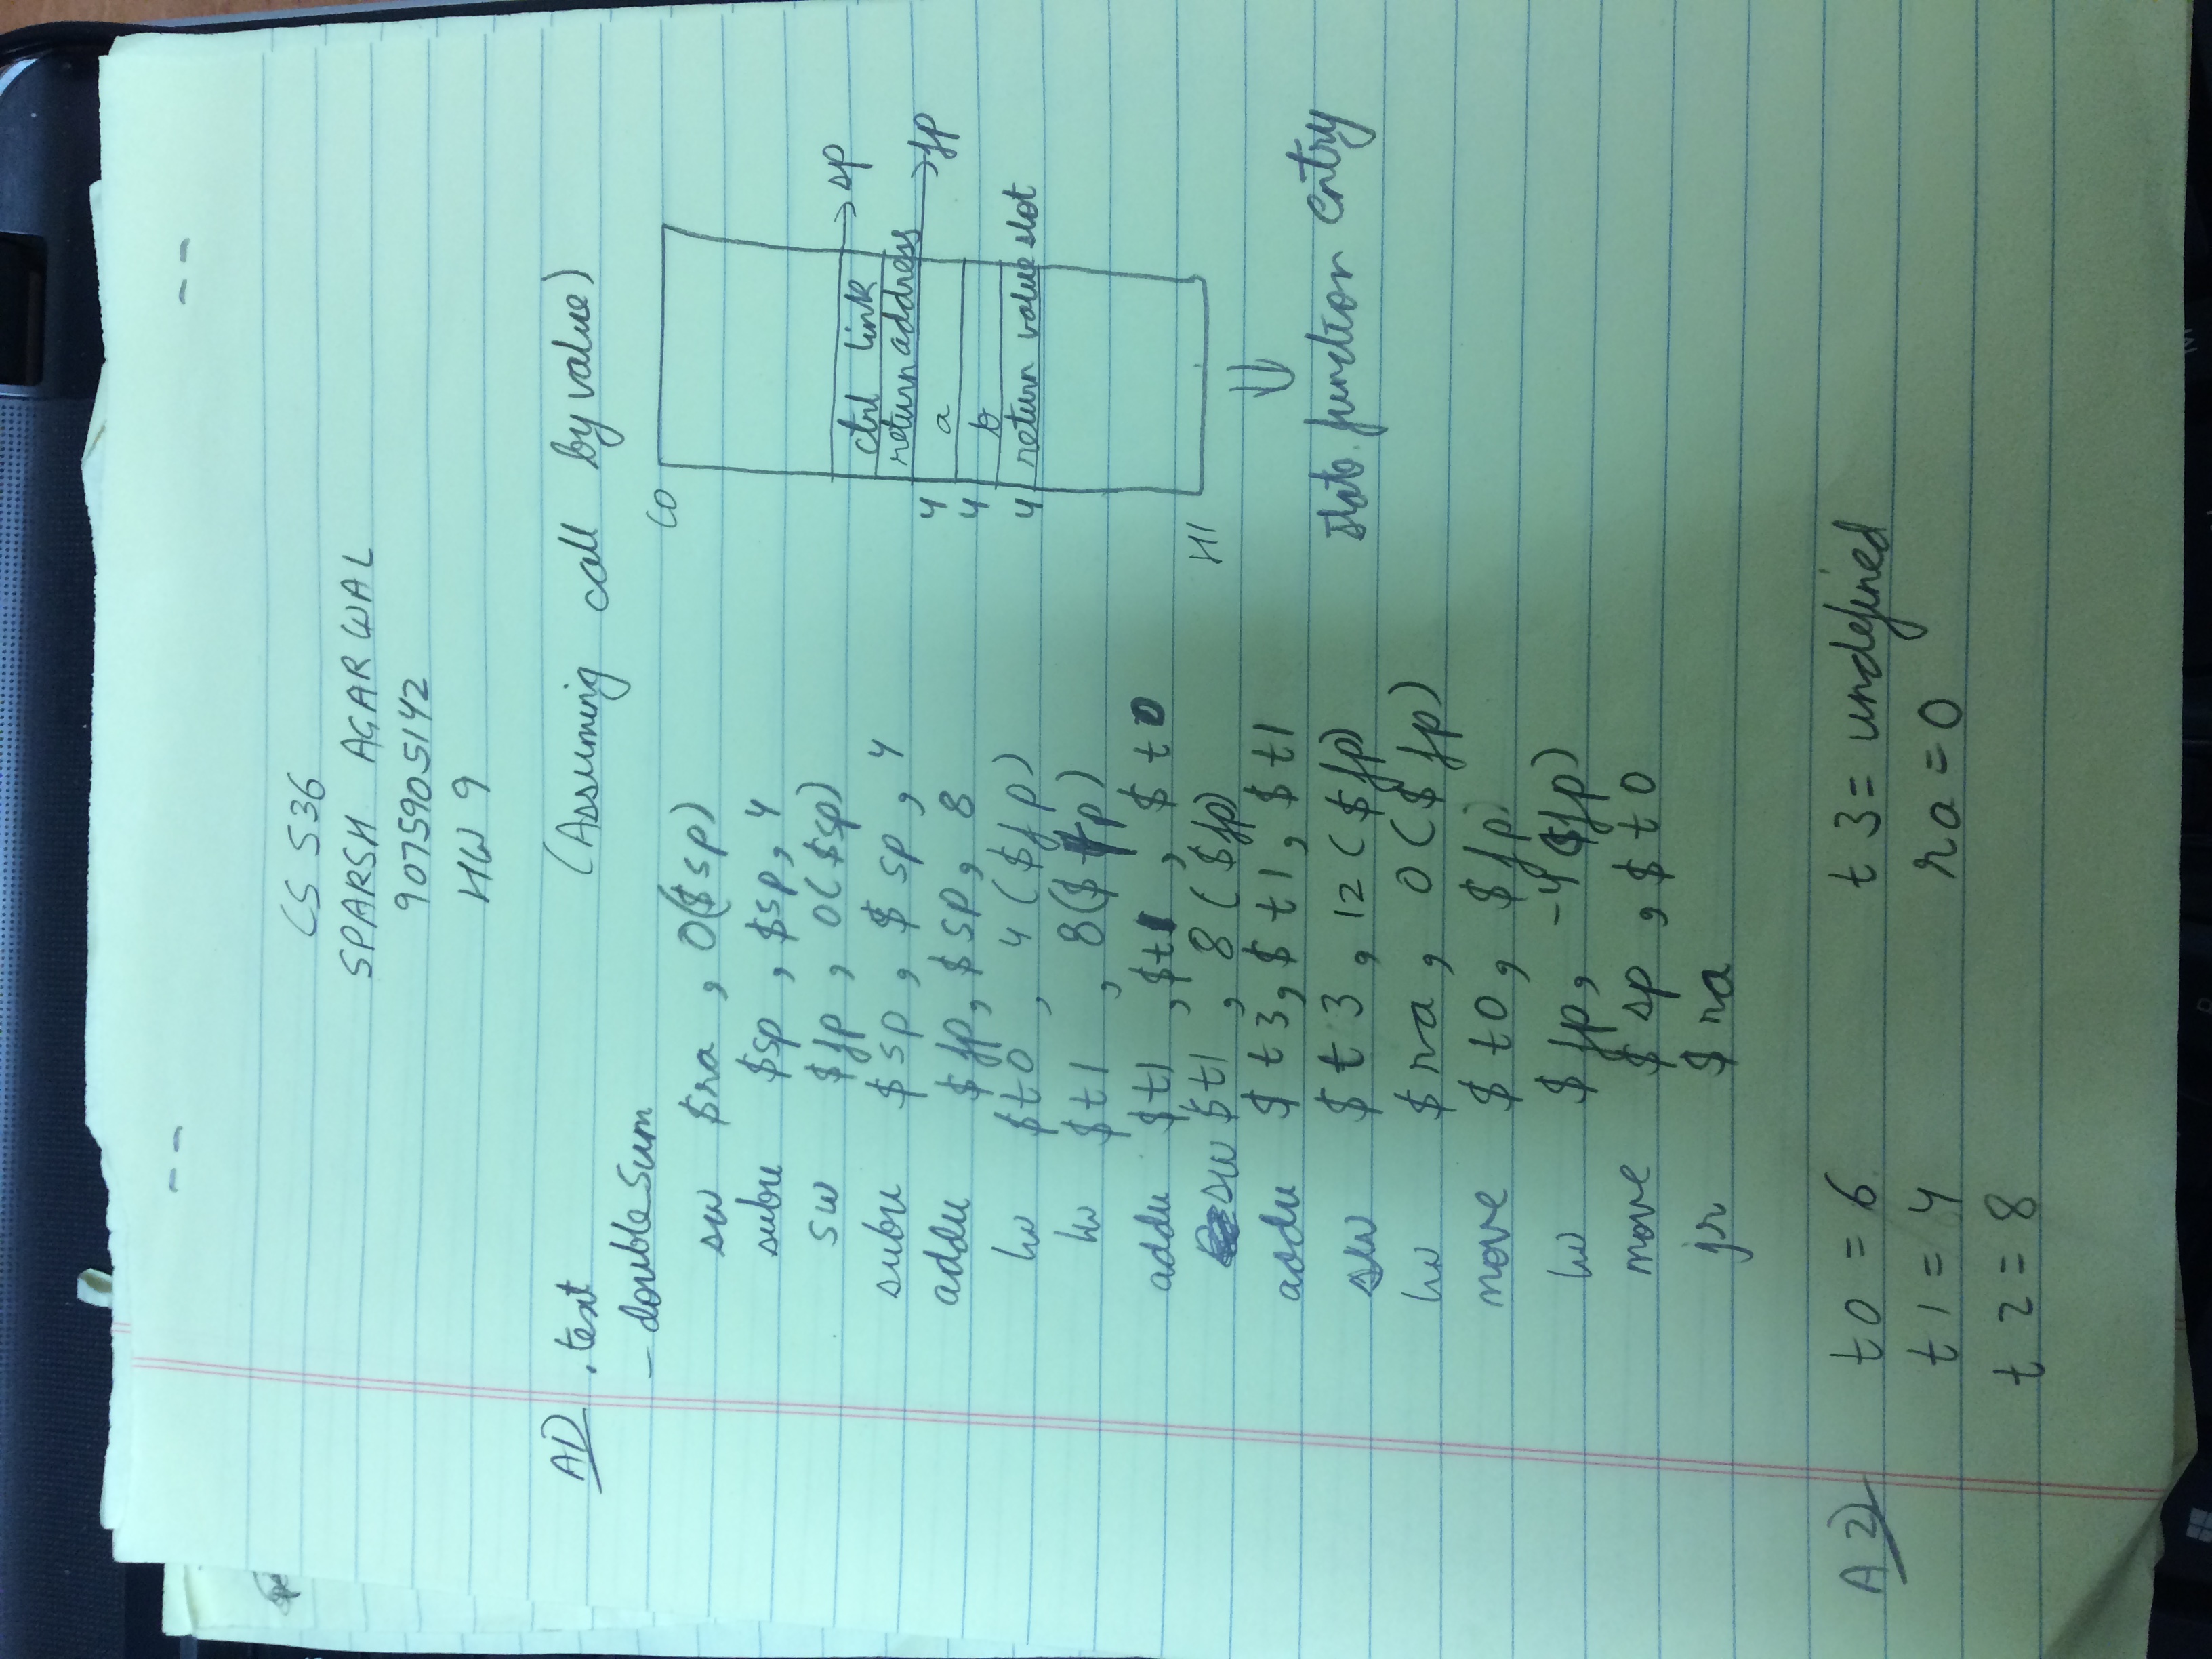 CS 536
SPARSH AGARWAL
9075905142
HW 9
A1) .text (Assuming call by value)
_doubleSum
sw $ra, 0($sp)
subu $sp, $sp, 4
sw $fp, 0($sp)
subu $sp, $sp, 4
addu $fp, $sp, 8
lw $t0, 4($fp)
lw $t1, 8($fp)
addu $t1, $t1, $t0
sw $t1, 8($fp)
addu $t3, $t1, $t1
sw $t3, 12($fp)
lw $ra, 0($fp)
move $t0, $fp
lw $fp, -4($fp)
move $sp, $t0
jr $ra
LO
→ sp
ctrl link
return address
→ fp
4 a
4 b
4 return value slot
HI
function entry
A2) t0 = 6 t3 = undefined
t1 = 4 ra = 0
t2 = 8